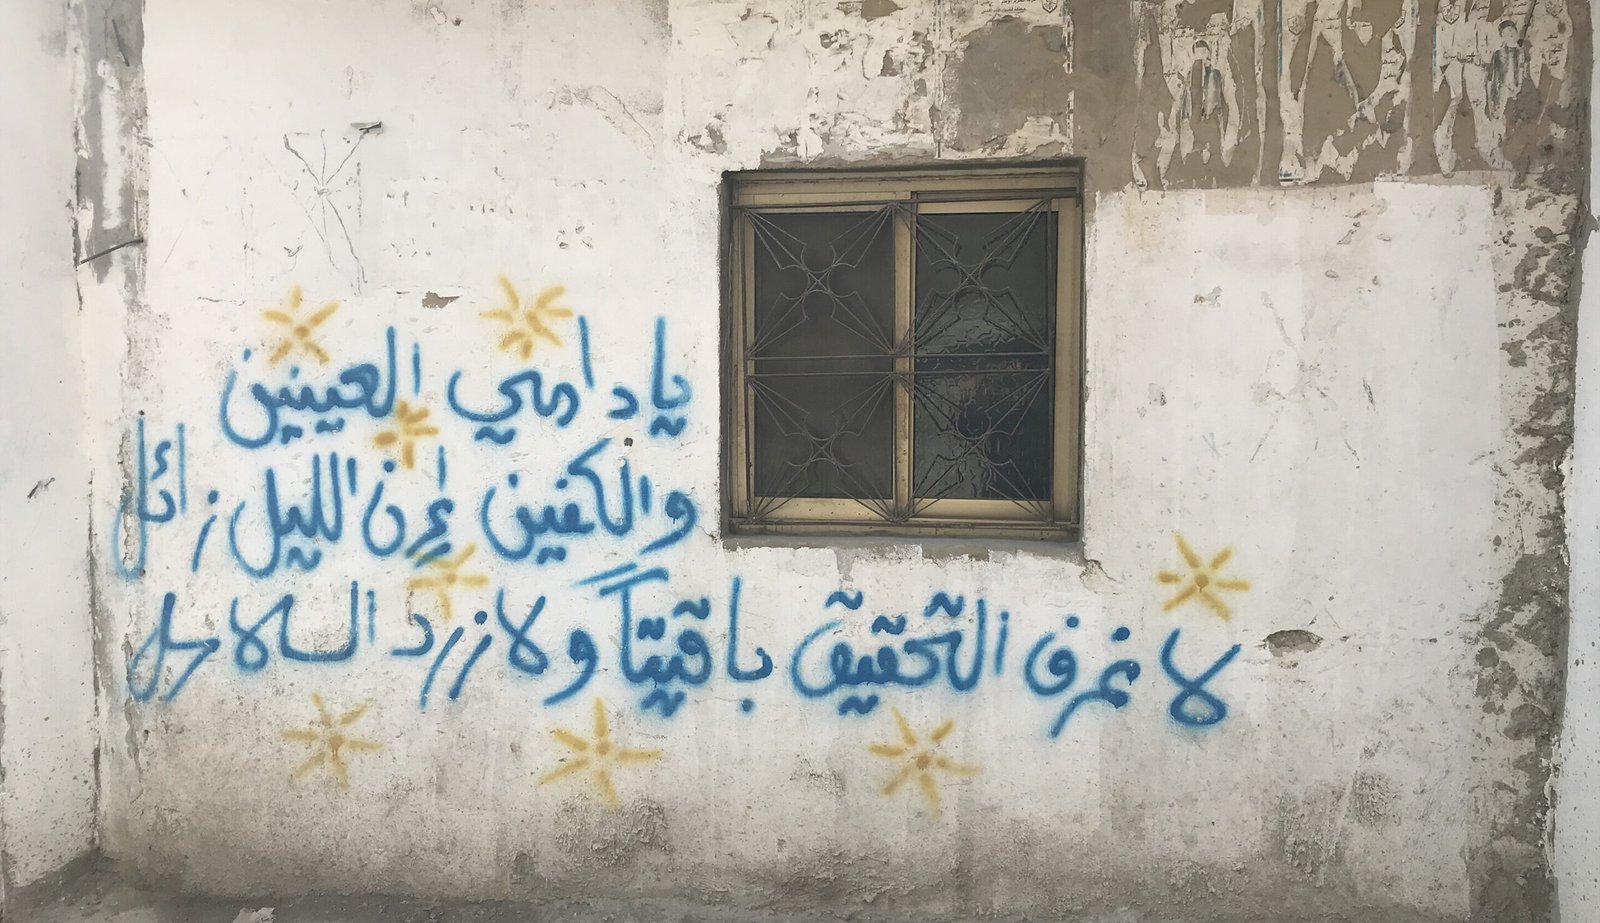 يا دامي العينين
والكفين إن الليل زائل
لا غرف التحقيق باقيتاً ولا زرد السلاسل